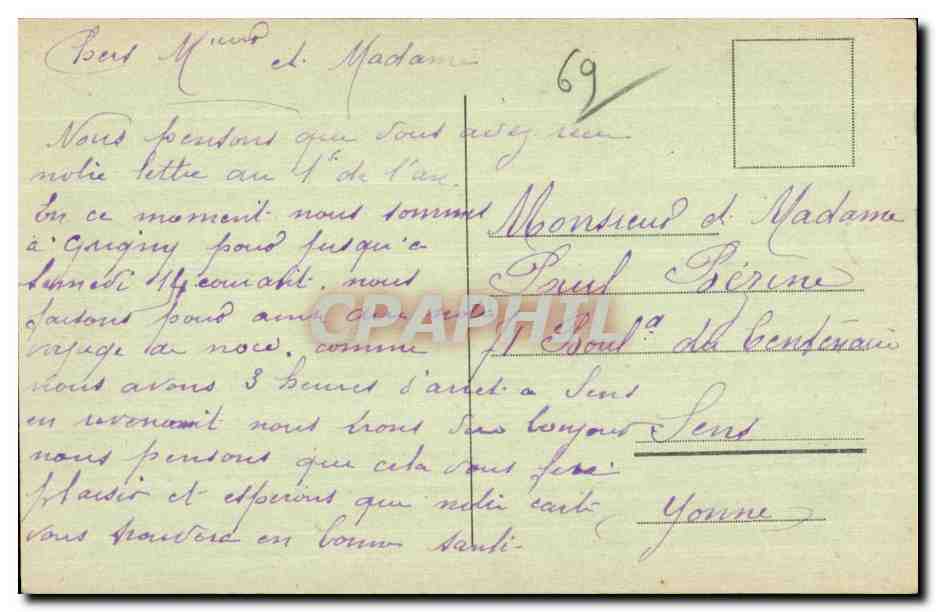 Chers M et Madame
69
Nous pensons que vous avez reçu
notre lettre du 1er de l'an.
En ce moment nous sommes
à Grigny pour jusqu'a
samedi 14 courant. nous
faisons pour ainsi dire notre
voyage de noce. comme
nous avons 3 heures d'arret a Sens
en revenant nous irons dire bonjour
nous pensons que cela vous fera
plaisir et esperons que notre carte
vous trouvera en bonne santé
Monsieur et Madame
Paul Bézine
71 Boul.d du Centenaire
Sens
Yonne
CPAPHIL